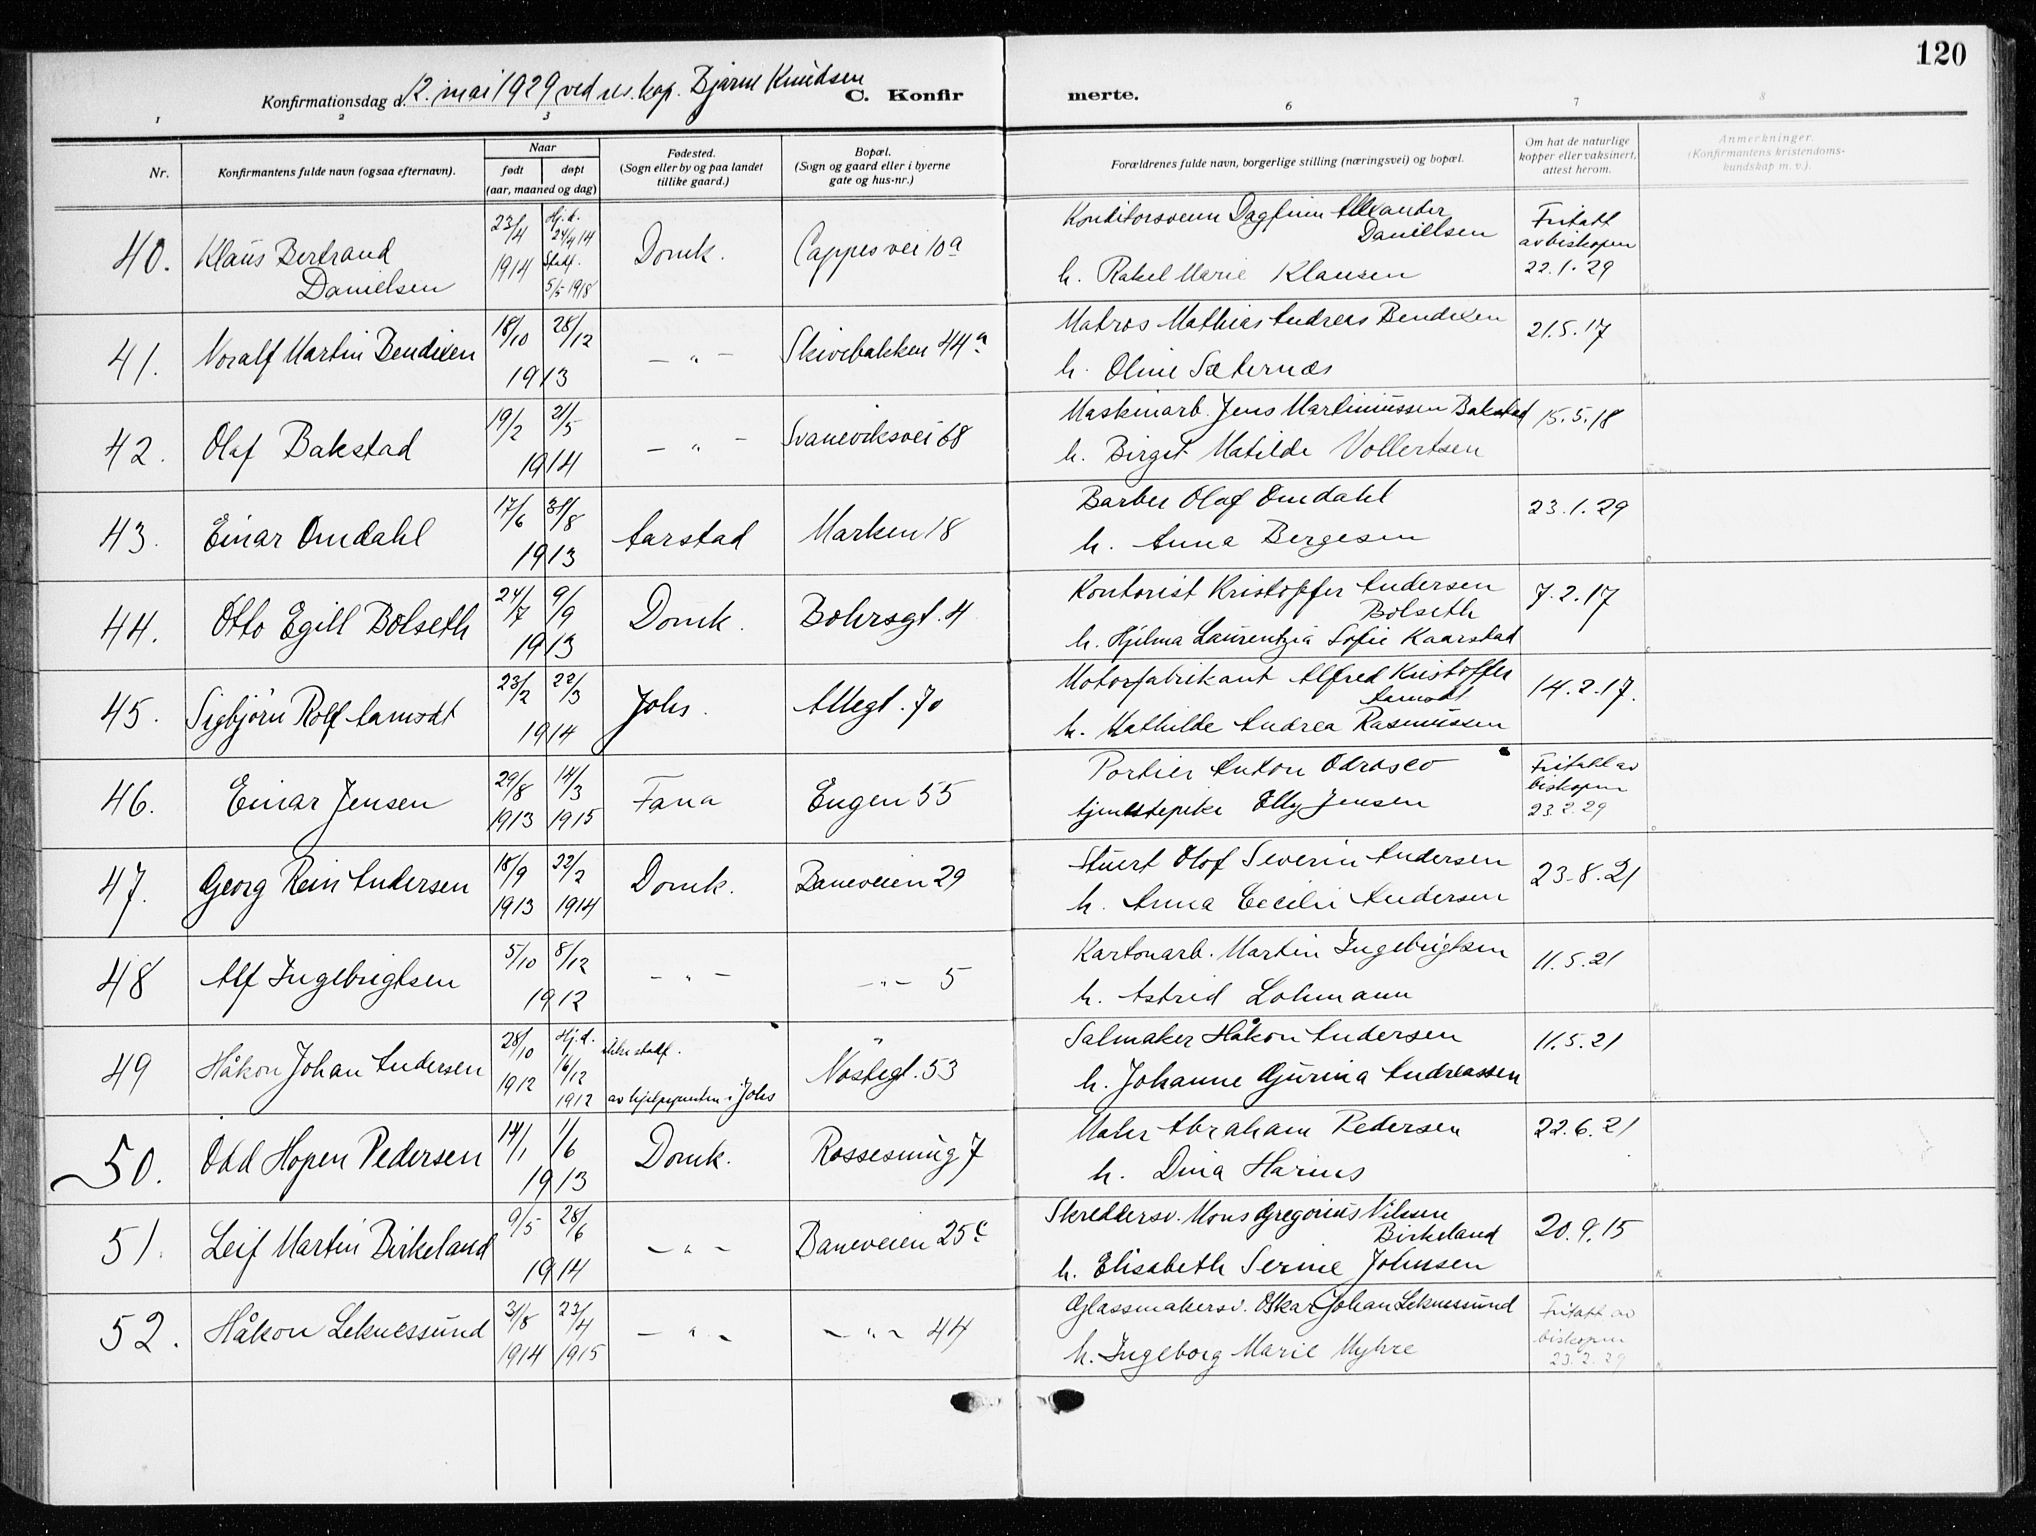 120
Konfirmationsdag d. 12. mai 1929 ved res. kap. Bjarne Knudsen
C. Konfirmerte.
1 2 3 6 7 8
Nr.
Konfirmantens fulde navn (ogsaa efternavn).
Naar
født
døpt
(aar, maaned og dag)
Fødested.
(Sogn eller by og paa landet
tillike gaard.)
Bopæl.
(Sogn og gaard eller i byerne
gate og hus-nr.)
Forældrenes fulde navn, borgerlige stilling (næringsvei) og bopæl.
Om hat de naturlige
kopper eller vaksinert,
attest herom.
Anmerkninger.
(Konfirmantens kristendoms-
kundskap m. v.).
40. Klaus Bertrand Danielsen
23/4 1914
Hj.d. 24/4 14 Stadf. 5/5 1918
Domk.
Cappes vei 10a
Konditorsvenn Dagfinn Alexander Daniellsen
h. Rakel Marie Klausen
Fritatt av biskopen 22.1.29
41. Noralf Martin Bendixen
18/10 28/12 1913
— " —
Skivebakken 44a
Matros Mathias Andreas Bendixen
h. Oline Sæternæs
21.5.17
42. Olaf Bakstad
19/2 21/5 1914
— " —
Svaneviksvei 68
Maskinarb. Jens Martinussen Bakstad
h. Birgit Matilde Vollertsen
15.5.18
43. Einar Omdahl
17/6 31/8 1913
Aarstad
Marken 18
Barber Olaf Omdahl
h. Anna Bergesen
23.1.29
44. Otto Egill Bolseth
24/7 9/9 1913
Domk.
Bohrsgt. 4
Kontorist Kristoffer Andersen Bolseth
h. Hjelma Laurentzia Sofie Kaarstad
7.2.17
45. Sigbjørn Rolf Aamodt
23/2 22/3 1914
Johs.
Allegt. 70
Motorfabrikant Alfred Kristoffer Aamodt
h. Mathilde Andrea Rasmussen
14.2.17.
46. Einar Jensen
29/8 1913
14/3 1915
Fana
Engen 55
Portier Anton Odrasco
tjenestepike Elly Jensen
Fritatt av biskopen 23.2.29
47. Georg Rein Andersen
18/9 1913
22/2 1914
Domk.
Baneveien 29
Stuert Olof Severin Andersen
h. Anna Cecilie Andersen
23.8.21
48 Alf Ingebrigtsen
5/10 8/12 1912
— " —
— " — 5
Kartonarb. Martin Ingebrigtsen
h. Astrid Lohmann
11.5.21
49 Håkon Johan Andersen
28/10 1912
Hj.d. 16/12 1912
stadf.
av hjelpepresten i Johs
Nøstegt. 53
Salmaker Håkon Andersen
h. Johanne Gurina Andreassen
11.5.21
50. Odd Hopen Pedersen
14/1 1/6 1913
Domk.
Rossesmug 7
Maler Abraham Pedersen
h. Dina Harins
22.6.21
51. Leif Martin Birkeland
9/5 28/6 1914
— " —
Baneveien 25c
Skreddersv. Mons Gregorius Nilsen Birkeland
h. Elisabeth Serine Johnsen
20.9.15
52. Håkon Leknessund
31/8 1914
23/4 1915
— " —
— " — 44
Glassmakersv. Oskar Johan Leknessund
h. Ingeborg Marie Myhre
Fritatt av biskopen 23.2.29